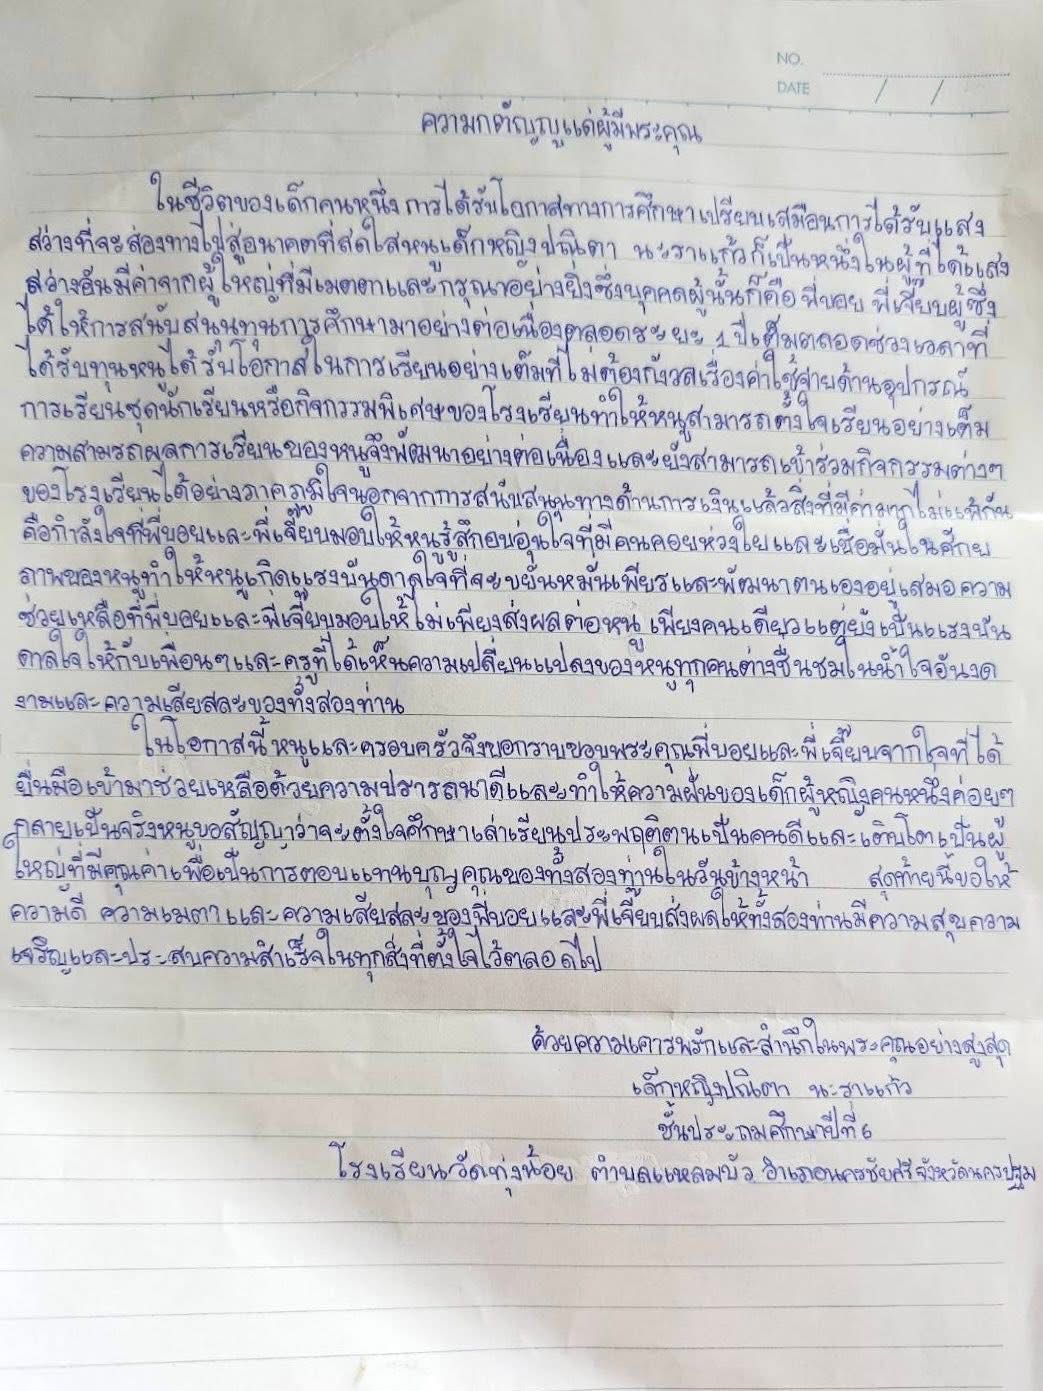 NO.
DATE / /
ความกตัญญูแด่ผู้มีพระคุณ
ในชีวิตของเด็กคนหนึ่ง การได้รับโอกาสทางการศึกษาเปรียบเสมือนการได้รับแสง
สว่างที่จะส่องทางไปสู่อนาคตที่สดใสหนูเด็กหญิงปณิตา นะราแก้วก็เป็นหนึ่งในผู้ที่ได้แสง
สว่างอันมีค่าจากผู้ใหญ่ที่มีเมตตาและกรุณาอย่างยิ่งซึ่งบุคคลผู้นั้นก็คือ พี่บอย พี่เจี๊ยบผู้ซึ่ง
ได้ให้การสนับสนุนทุนการศึกษามาอย่างต่อเนื่องตลอดระยะ 1 ปีเต็มตลอดช่วงเวลาที่
ได้รับทุนหนูได้รับโอกาสในการเรียนอย่างเต็มที่ไม่ต้องกังวลเรื่องค่าใช้จ่ายด้านอุปกรณ์
การเรียนชุดนักเรียนหรือกิจกรรมพิเศษของโรงเรียนทำให้หนูสามารถตั้งใจเรียนอย่างเต็ม
ความสามรถผลการเรียนของหนูจึงพัฒนาอย่างต่อเนื่องและยังสามารถเข้าร่วมกิจกรรมต่างๆ
ของโรงเรียนได้อย่างภาคภูมิใจนอกจากการสนับสนุนทางด้านการเงินแล้วสิ่งที่มีค่ามากไม่แพ้กัน
คือกำลังใจที่พี่บอยและพี่เจี๊ยบมอบให้หนูรู้สึกอบอุ่นใจที่มีคนคอยห่วงใยและเชื่อมั่นในศักย
ภาพของหนูทำให้หนูเกิดแรงบันดาลใจที่จะขยันหมั่นเพียรและพัฒนาตนเองอยู่เสมอ ความ
ช่วยเหลือที่พี่บอยและพี่เจี๊ยบมอบให้ไม่เพียงส่งผลต่อหนู เพียงคนเดียวแต่ยังเป็นแรงบัน
ดาลใจให้กับเพื่อนๆและครูที่ได้เห็นความเปลี่ยนแปลงของหนูทุกคนต่างชื่นชมในน้ำใจอันงด
งามและความเสียสละของทั้งสองท่าน
ในโอกาสนี้ หนูและครอบครัวจึงขอกราบขอบพระคุณพี่บอยและพี่เจี๊ยบจากใจที่ได้
ยื่นมือเข้ามาช่วยเหลือด้วยความปรารถนาดีและทำให้ความฝันของเด็กผู้หญิงคนหนึ่งค่อยๆ
กลายเป็นจริงหนูขอสัญญาว่าจะตั้งใจศึกษาเล่าเรียนประพฤติตนเป็นคนดีและเติบโตเป็นผู้
ใหญ่ที่มีคุณค่า เพื่อเป็นการตอบแทนบุญคุณของทั้งสองท่านในวันข้างหน้า สุดท้ายนี้ขอให้
ความดี ความเมตาและความเสียสละของพี่บอยและพี่เจี๊ยบส่งผลให้ทั้งสองท่านมีความสุขความ
เจริญและประสบความสำเร็จในทุกสิ่งที่ตั้งใจไว้ตลอดไป
ด้วยความเคารพรักและสำนึกในพระคุณอย่างสูงสุด
เด็กหญิงปณิตา นะราแก้ว
ชั้นประถมศึกษาปีที่ 6
โรงเรียนวัดทุ่งน้อย ตำบลแหลมบัว อำเภอนครชัยศรีจังหวัดนครปฐม